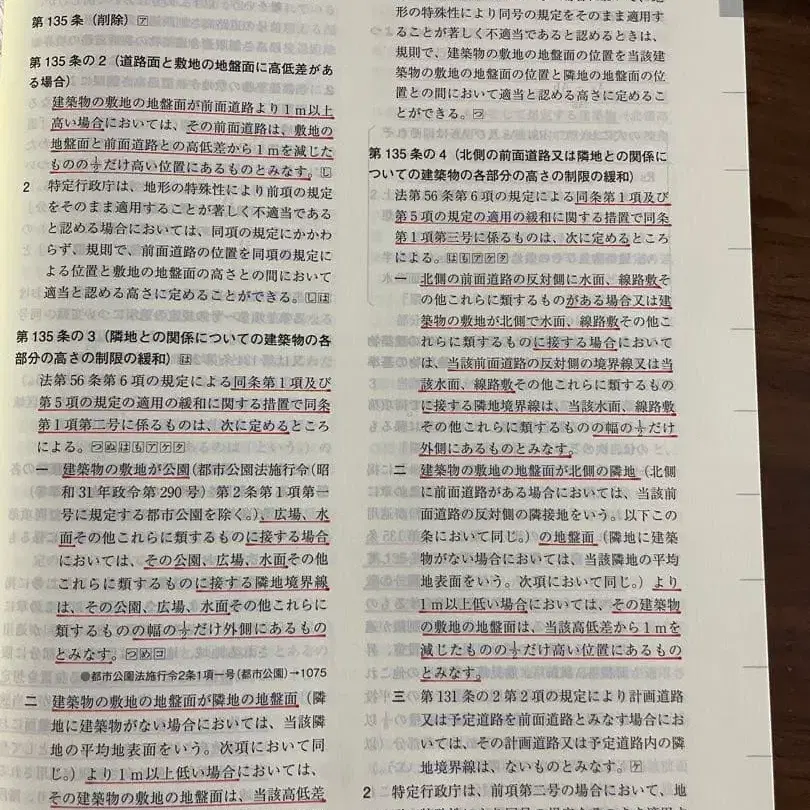 第135条(削除) ア
第135条の2(道路面と敷地の地盤面に高低差があ
る場合)
建築物の敷地の地盤面が前面道路より1m以上
高い場合においては、その前面道路は、敷地の
地盤面と前面道路との高低差から1mを減じた
ものの1/2だけ高い位置にあるものとみなす。し
2 特定行政庁は、地形の特殊性により前項の規定
をそのまま適用することが著しく不適当である
と認める場合においては、同項の規定にかかわ
らず、規則で、前面道路の位置を同項の規定に
よる位置と敷地の地盤面の高さとの間において
適当と認める高さに定めることができる。しほ
第135条の3(隣地との関係についての建築物の各
部分の高さの制限の緩和) は
法第56条第6項の規定による同条第1項及び
第5項の規定の適用の緩和に関する措置で同条
第1項第二号に係るものは、次に定めるところ
による。つぬはもアケタ
一 建築物の敷地が公園(都市公園法施行令(昭
和31年政令第290号)第2条第1項第一
号に規定する都市公園を除く。)、広場、水
面その他これらに類するものに接する場合
においては、その公園、広場、水面その他
これらに類するものに接する隣地境界線
は、その公園、広場、水面その他これらに
類するものの幅の1/2だけ外側にあるもの
とみなす。つめコ
●都市公園法施行令2条1項一号(都市公園)→1075
二 建築物の敷地の地盤面が隣地の地盤面(隣
地に建築物がない場合においては、当該隣
地の平均地表面をいう。次項において同
じ。)より1m以上低い場合においては、
その建築物の敷地の地盤面は、当該高低差
形の特殊性により同号の規定をそのまま適用す
ることが著しく不適当であると認めるときは、
規則で、建築物の敷地の地盤面の位置を当該建
築物の敷地の地盤面の位置と隣地の地盤面の位
置との間において適当と認める高さに定めるこ
とができる。つ
第135条の4(北側の前面道路又は隣地との関係に
ついての建築物の各部分の高さの制限の緩和)
法第56条第6項の規定による同条第1項及び
第5項の規定の適用の緩和に関する措置で同条
第1項第三号に係るものは、次に定めるところ
による。はもアケタ
一 北側の前面道路の反対側に水面、線路敷そ
の他これらに類するものがある場合又は建
築物の敷地が北側で水面、線路敷その他こ
れらに類するものに接する場合において
は、当該前面道路の反対側の境界線又は当
該水面、線路敷その他これらに類するもの
に接する隣地境界線は、当該水面、線路敷
その他これらに類するものの幅の1/2だけ
外側にあるものとみなす。
二 建築物の敷地の地盤面が北側の隣地(北側
に前面道路がある場合においては、当該前
面道路の反対側の隣接地をいう。以下この
条において同じ。)の地盤面(隣地に建築
物がない場合においては、当該隣地の平均
地表面をいう。次項において同じ。)より
1m以上低い場合においては、その建築物
の敷地の地盤面は、当該高低差から1mを
減じたものの1/2だけ高い位置にあるもの
とみなす。
三 第131条の2第2項の規定により計画道路
又は予定道路を前面道路とみなす場合にお
いては、その計画道路又は予定道路内の隣
地境界線は、ないものとみなす。ケ
2 特定行政庁は、前項第二号の場合において、地